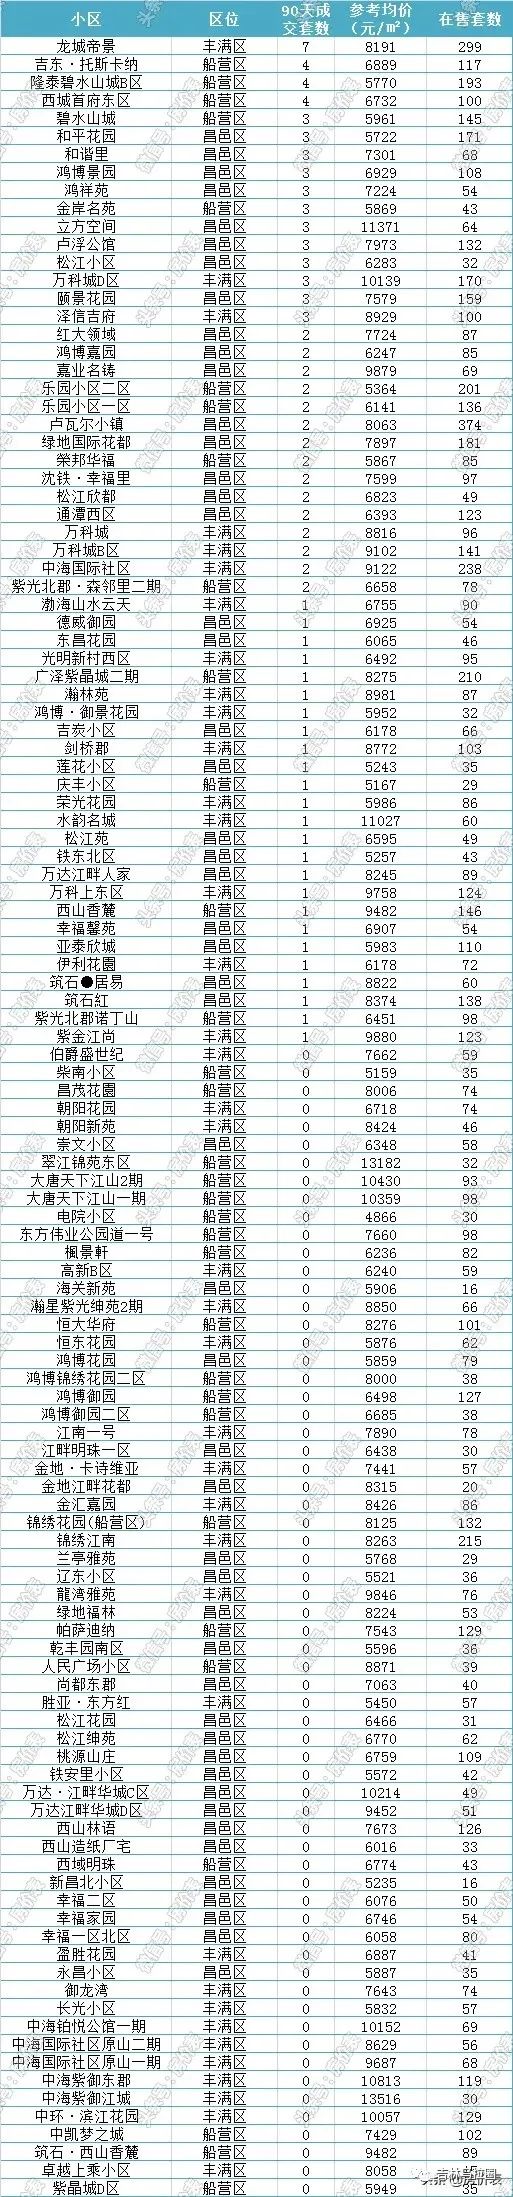 小区 区位 90天成交套数 参考均价（元/㎡） 在售套数
龙城帝景 丰满区 7 8191 299
吉东·托斯卡纳 船营区 4 6889 117
隆泰碧水山城B区 船营区 4 5770 193
西城首府东区 船营区 4 6732 100
碧水山城 船营区 3 5961 145
和平花园 昌邑区 3 5722 171
和谐里 昌邑区 3 7301 68
鸿博景园 昌邑区 3 6929 108
鸿祥苑 昌邑区 3 7224 54
金岸名苑 船营区 3 5869 43
立方空间 昌邑区 3 11371 64
卢浮公馆 昌邑区 3 7973 132
松江小区 昌邑区 3 6283 32
万科城D区 丰满区 3 10139 170
颐景花园 昌邑区 3 7579 159
泽信吉府 丰满区 3 8929 100
红大领域 昌邑区 2 7724 87
鸿博嘉园 昌邑区 2 6247 85
嘉业名铸 昌邑区 2 9879 69
乐园小区二区 船营区 2 5364 201
乐园小区一区 船营区 2 6141 136
卢瓦尔小镇 丰满区 2 8063 374
绿地国际花都 昌邑区 2 7897 181
榮邦华福 船营区 2 5867 85
沈铁·幸福里 昌邑区 2 7599 97
松江欣都 昌邑区 2 6823 49
通潭西区 昌邑区 2 6393 123
万科城 丰满区 2 8816 96
万科城B区 丰满区 2 9102 141
中海国际社区 丰满区 2 9122 238
紫光北郡·森邻里二期 船营区 2 6658 78
渤海山水云天 丰满区 1 6755 90
德威御园 昌邑区 1 6925 54
东昌花园 昌邑区 1 6065 46
光明新村西区 丰满区 1 6492 95
广泽紫晶城二期 船营区 1 8275 210
瀚林苑 丰满区 1 8981 87
鸿博·御景花园 丰满区 1 5952 32
吉炭小区 昌邑区 1 6178 66
剑桥郡 丰满区 1 8772 103
莲花小区 昌邑区 1 5243 35
庆丰小区 船营区 1 5167 29
荣光花园 丰满区 1 5986 86
水韵名城 丰满区 1 11027 60
松江苑 昌邑区 1 6595 49
铁东北区 昌邑区 1 5257 43
万达江畔人家 昌邑区 1 8245 89
万科上东区 丰满区 1 9758 124
西山香麓 船营区 1 9482 146
幸福馨苑 昌邑区 1 6907 54
亚泰欣城 昌邑区 1 5983 110
伊利花園 丰满区 1 6178 72
筑石●居易 昌邑区 1 8822 60
筑石紅 昌邑区 1 8374 138
紫光北郡诺丁山 船营区 1 6451 98
紫金江尚 丰满区 1 9880 123
伯爵盛世纪 丰满区 0 7662 59
柴南小区 船营区 0 5159 35
昌茂花園 船营区 0 8006 74
朝阳花园 丰满区 0 6718 74
朝阳新苑 丰满区 0 8424 46
崇文小区 昌邑区 0 6348 58
翠江锦苑东区 船营区 0 13182 32
大唐天下江山2期 船营区 0 10430 93
大唐天下江山一期 船营区 0 10359 98
电院小区 船营区 0 4866 30
东方伟业公园道一号 船营区 0 7660 98
楓景軒 船营区 0 6236 82
高新B区 丰满区 0 6240 59
海关新苑 昌邑区 0 5906 16
瀚星紫光绅苑2期 丰满区 0 8850 66
恒大华府 船营区 0 8276 101
恒东花园 丰满区 0 5876 62
鸿博花园 昌邑区 0 5859 79
鸿博锦绣花园二区 船营区 0 8000 38
鸿博御园 船营区 0 6498 127
鸿博御园二区 船营区 0 6685 38
江南一号 丰满区 0 7890 78
江畔明珠一区 昌邑区 0 6438 30
金地·卡诗维亚 丰满区 0 7441 57
金地江畔花都 昌邑区 0 8315 20
金汇嘉园 丰满区 0 8426 86
锦绣花园(船营区) 船营区 0 8125 132
锦绣江南 丰满区 0 8263 215
兰亭雅苑 昌邑区 0 5768 29
辽东小区 昌邑区 0 5521 36
龍湾雅苑 丰满区 0 9846 76
绿地福林 昌邑区 0 8224 53
帕萨迪纳 船营区 0 7543 129
乾丰园南区 昌邑区 0 5596 36
人民广场小区 船营区 0 8871 39
尚都东郡 昌邑区 0 7063 40
胜亚·东方红 丰满区 0 5450 57
松江花园 昌邑区 0 6466 31
松江绅苑 昌邑区 0 6770 62
桃源山庄 昌邑区 0 6759 109
铁安里小区 昌邑区 0 5572 42
万达·江畔华城C区 昌邑区 0 10214 49
万达江畔华城D区 昌邑区 0 9452 51
西山林语 昌邑区 0 7673 126
西山造纸厂宅 昌邑区 0 6016 33
西域明珠 船营区 0 6774 43
新昌北小区 昌邑区 0 5235 16
幸福二区 昌邑区 0 6076 50
幸福家园 昌邑区 0 6746 54
幸福一区北区 昌邑区 0 6058 80
盈胜花园 丰满区 0 6887 41
永昌小区 昌邑区 0 5887 35
御龙湾 丰满区 0 7643 74
长光小区 丰满区 0 5832 57
中海铂悦公馆一期 丰满区 0 10152 69
中海国际社区原山二期 丰满区 0 8629 56
中海国际社区原山一期 丰满区 0 9687 68
中海紫御东郡 丰满区 0 10813 119
中海紫御江城 丰满区 0 13516 30
中环·滨江花园 丰满区 0 10057 129
中凯梦之城 船营区 0 7429 102
筑石·西山香麓 船营区 0 9482 89
卓越上乘小区 丰满区 0 8058
紫晶城D区 船营区 0 5949 35